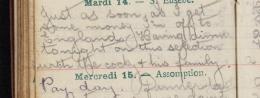 Mardi 14. — S. Eusèbe.
Just as soon as I get
some money I'm off to
England. Having dinner
tonight on this selection
with the cook & his family
Mercredi 15. — Assomption.
Pay day.